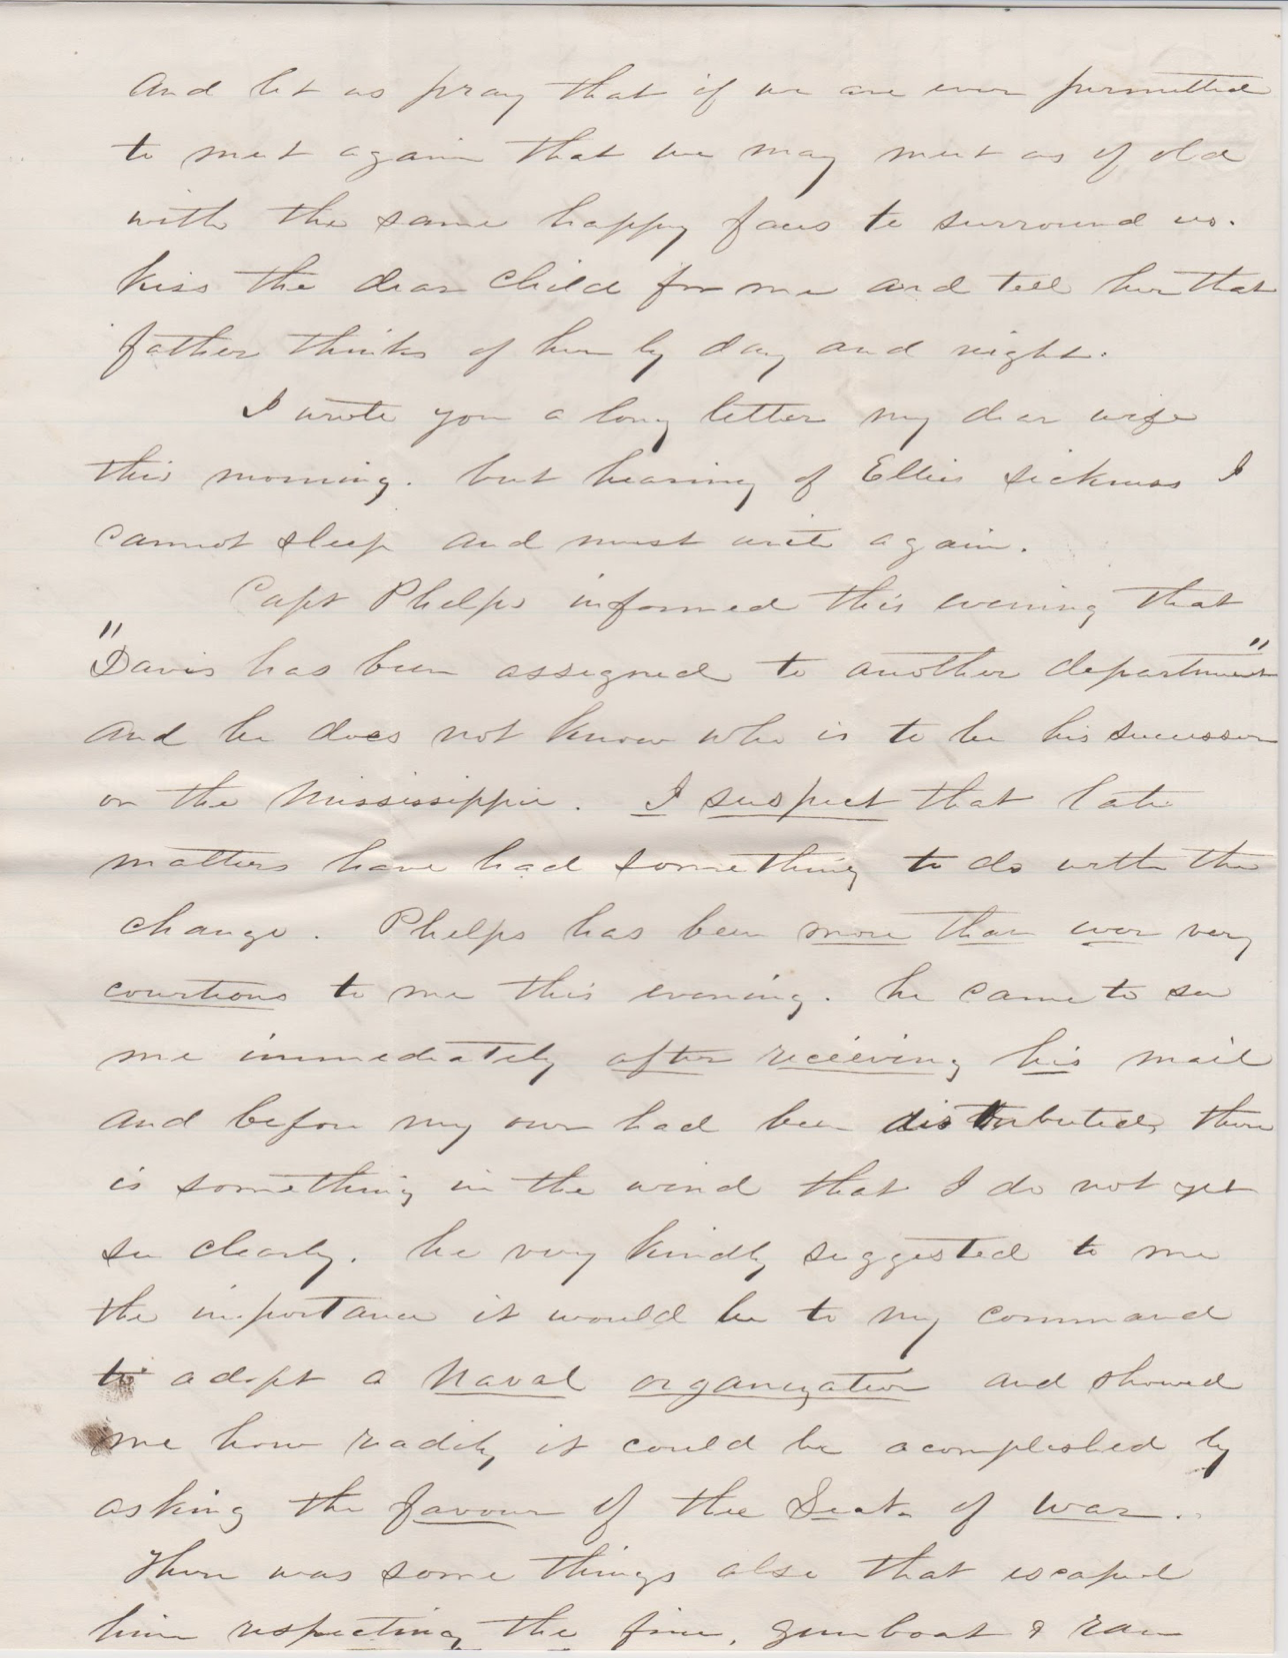 And let us pray that if we are ever permitted
to meet again that we may meet as of old
with the same happy faces to surround us.
Kiss the dear child for me and tell her that
father thinks of her by day and night.
I wrote you a long letter my dear wife
this morning. but hearing of Ellies sickness I
cannot sleep and must write again.
Capt Phelps informed this evening that
"Davis has been assigned to another department"
and he does not know who is to be his successor
on the Mississippi. I suspect that late
matters have had something to do with the
change. Phelps has been more than ever very
courteous to me this evening. he came to see
me immediately after receiving his mail
and before my own had been distributed, there
is something in the wind that I do not yet
see clearly. he very kindly suggested to me
the importance it would be to my command
to adopt a Naval organization and showed
me how readily it could be acomplished by
asking the favour of the Sect. of War.
There was some things also that escaped
him respecting the fine, gunboat & ram